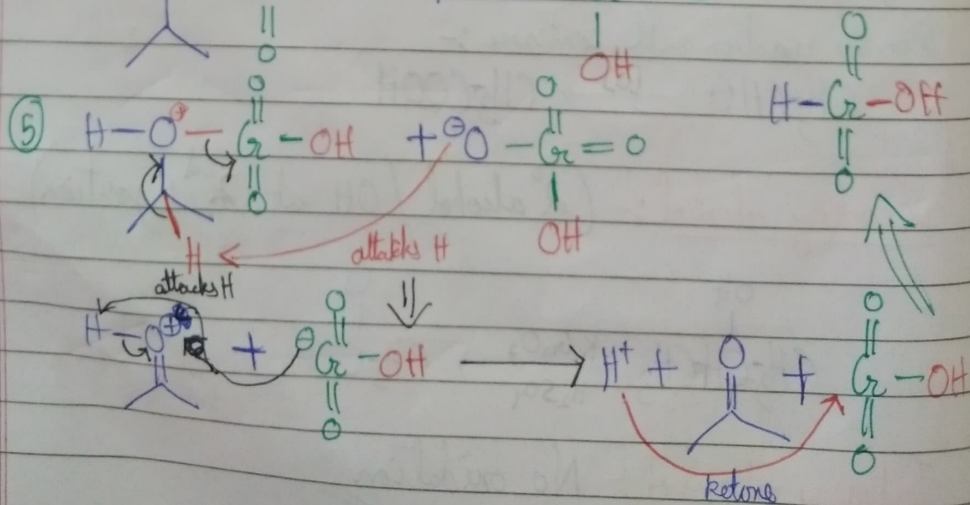 O
O
OH
O
H-Cr-OH
O
⑤ H-O⊕-Cr-OH + ⊖O-Cr=O
O
O
OH
H attacks H
attacks H
H-O⊕ + ⊖Cr-OH → H⁺ + O + Cr-OH
O
O
O
O
ketone